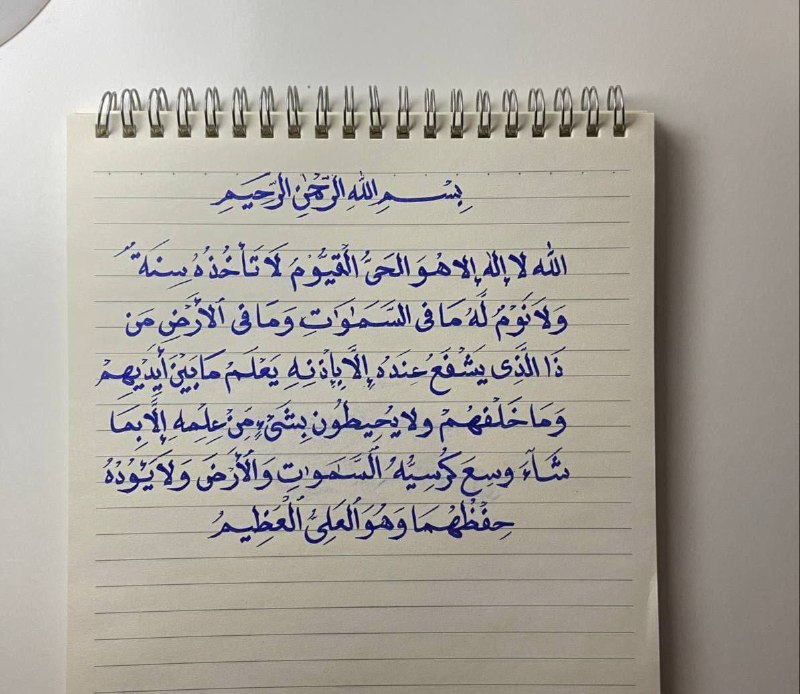 بِسْمِ اللهِ الرَّحْمٰنِ الرَّحِيمِ
اللّٰه لا إلٰه إلا هُوَ الحَيُّ الْقَيُّوْمَ لَا تَأْخُذُهُ سِنَةٌ
وَلَا نَوْمٌ لَّهُ مَا فى السَّمَـٰوَاتِ وَمَا فى الأَرْضِ مَن
ذَا الَّذِى يَشْفَعُ عِندَهُ إِلَّا بِإِذْنِهِ يَعْلَمُ مَا بَيْنَ أَيْدِيهِمْ
وَمَا خَلْفَهُمْ ولا يُحِيطُون بِشَىْءٍ مِّنْ عِلمِهِ إِلَّا بِمَا
شَآءَ وسِعَ كُرْسِيُّهُ السَّمَـٰوٰتِ وَالْأَرْضَ وَلَا يَـُٔودُهُ
حِفْظُهُمَا وَهُوَ العَلِىُّ الْعَظِيمُ